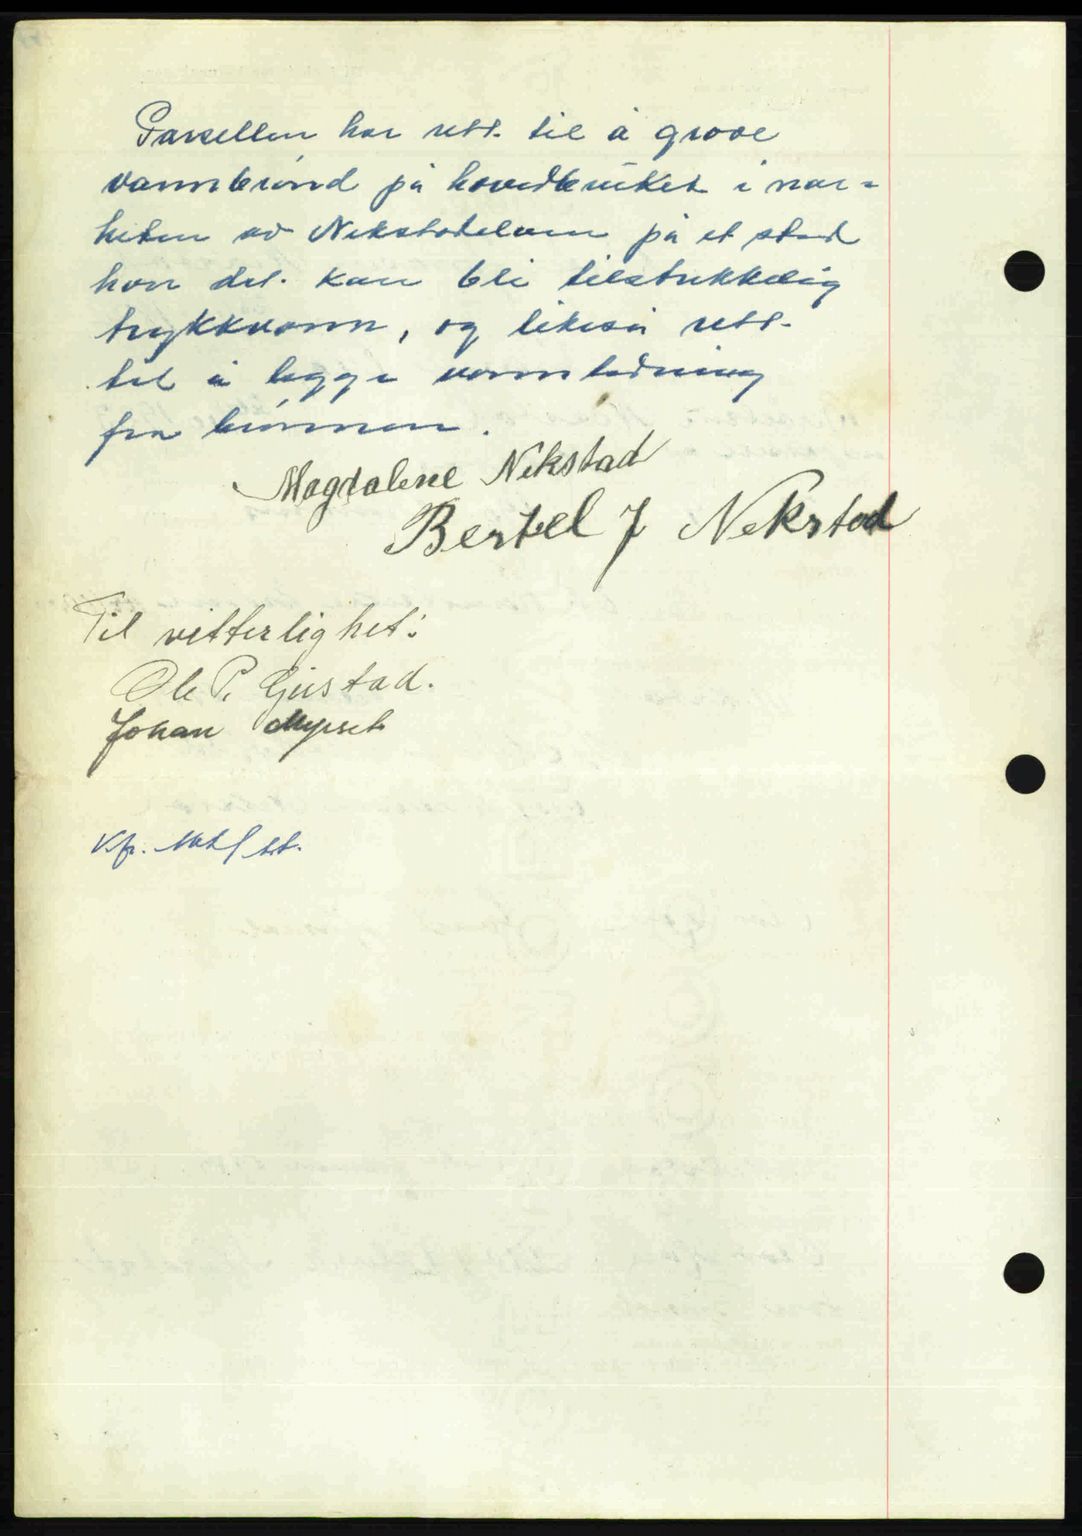 Parsellen har rett til å grave
vannbrønd på hovedbruket i nær=
heten av Nekstadelven på et sted
hvor det kan bli tilstrekkelig
trykkvann, og likeså rett
til å legge vannledning
fra brønnen.
Magdalene Nekstad
Bertel J Nekstad
Til vitterlighet:
Ole P. Gustad.
Johan Myrset
Kfr.